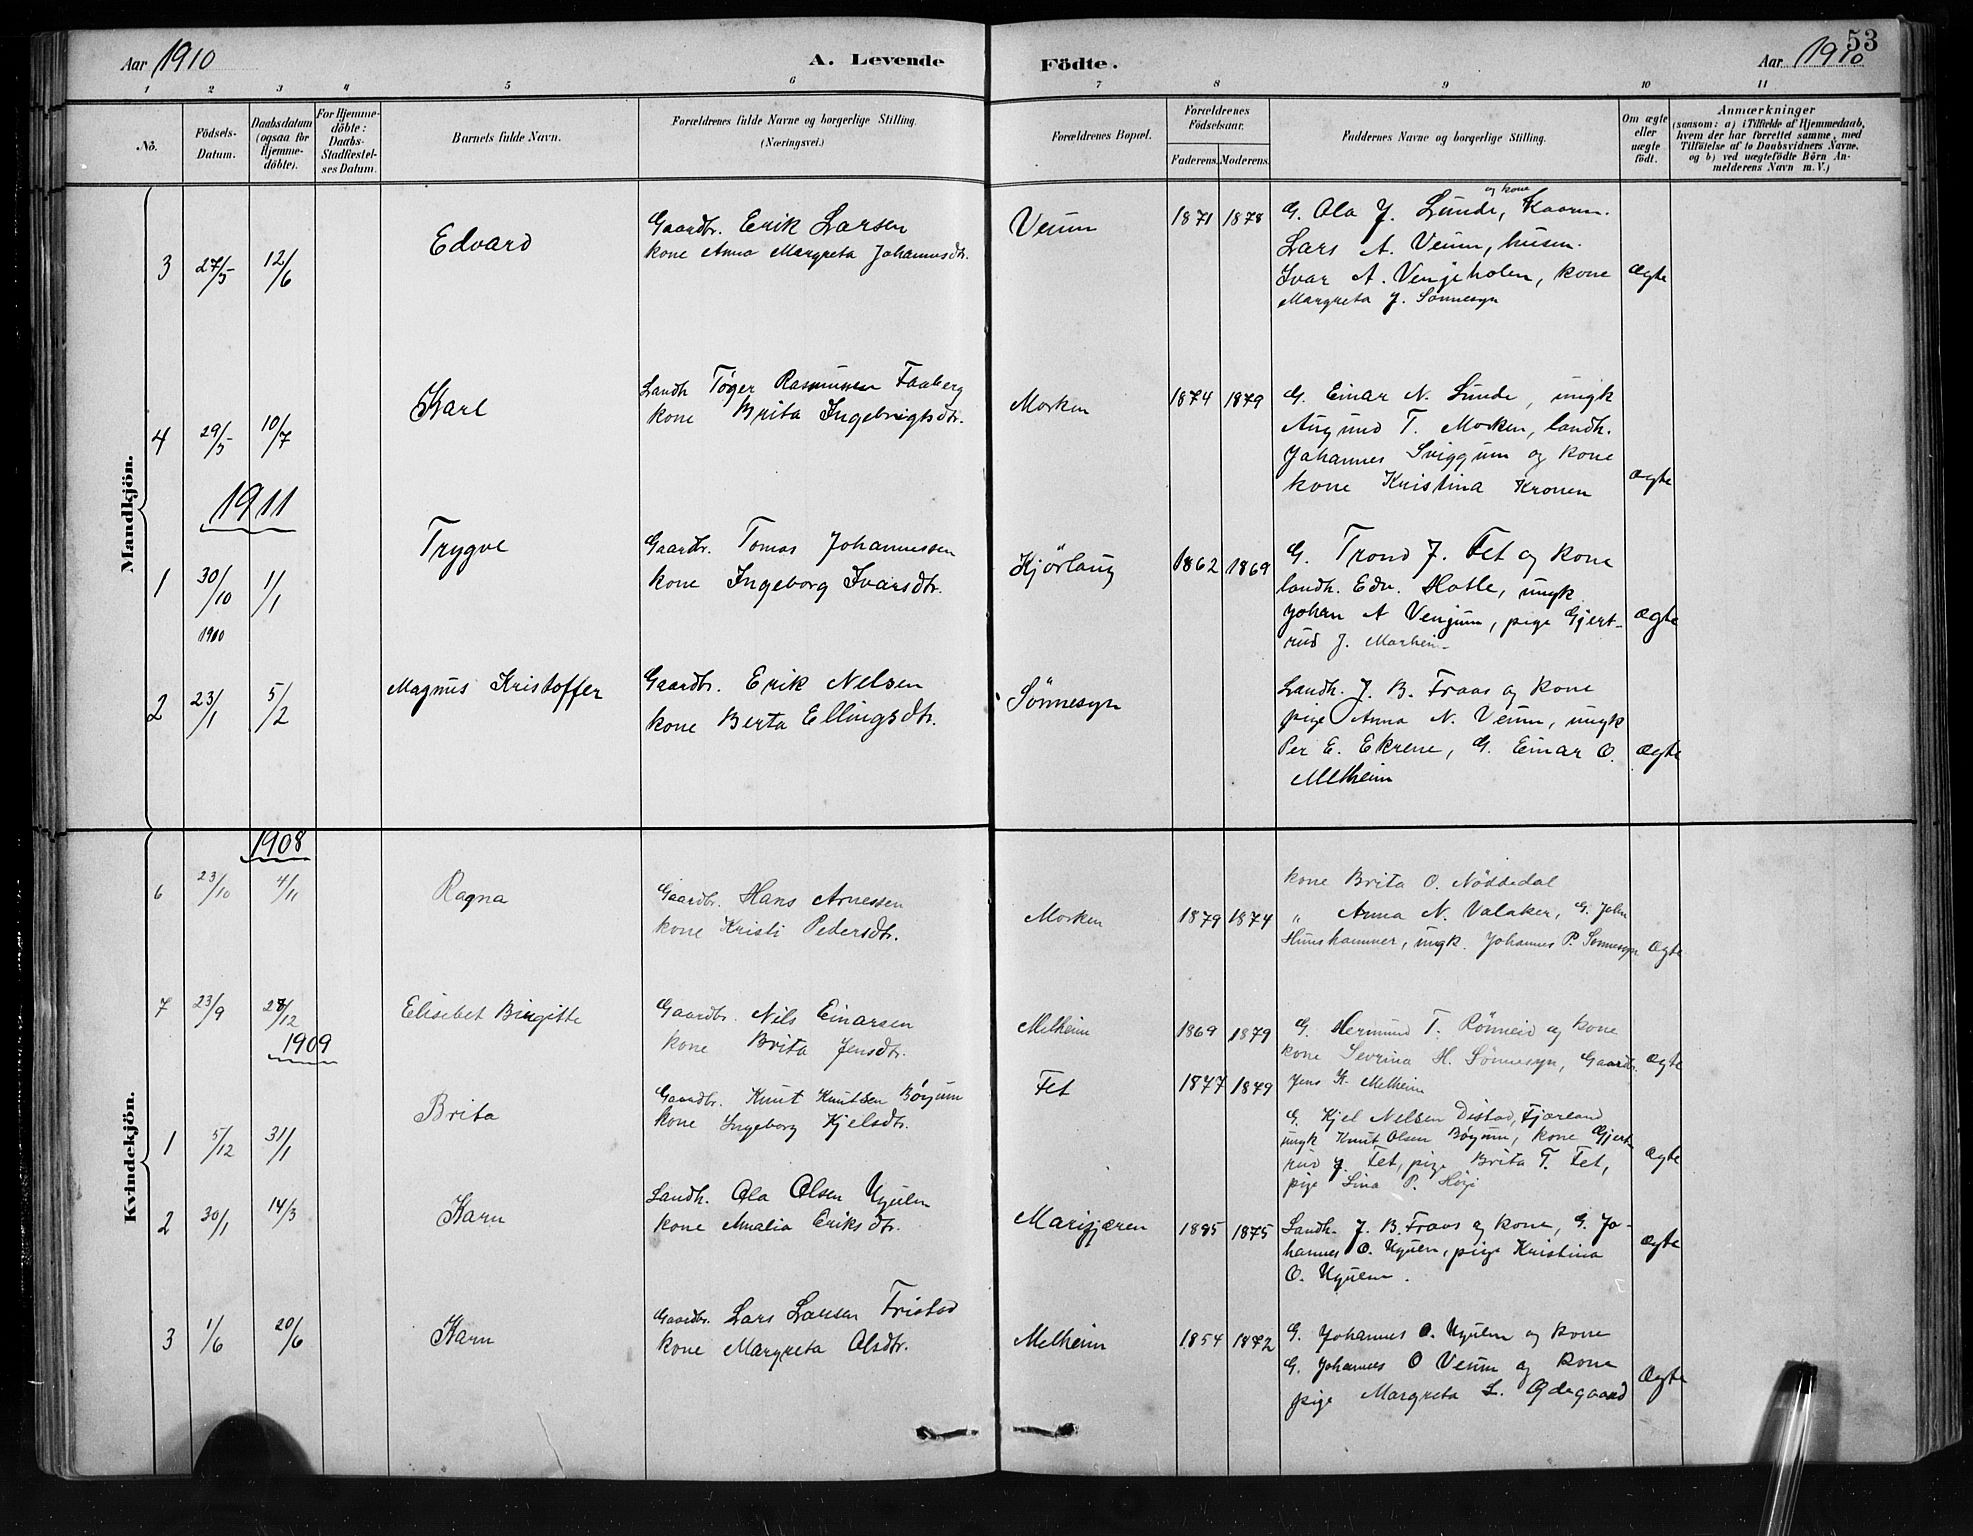 53
Aar 1910 A. Levende Födte. Aar 1910
1 2 3 4 5 6 7 8 9 10 11
No. Födsels-Datum. Daabsdatum (ogsaa for Hjemmedöbte). For Hjemmedöbte: Daabs-Stadfæstelses Datum. Barnets fulde Navn. Forældrenes fulde Navne og borgerlige Stilling. (Næringsvei.) Forældrenes Bopæl. Forældrenes Födselsaar. Faderens. Moderens. Faddernes Navne og borgerlige Stilling. Om ægte eller uægte födt. Anmærkninger
(saasom: a) i Tilfælde af Hjemmedaab, hvem der har forrettet samme, med Tilföielse af to Daabsvidners Navne, og b) ved uægtefödte Börn Anmelderens Navn m. V.)
Mandkjön.
3 27/5 12/6 Edvard Gaardbr. Erik Larsen
kone Anna Margreta Johannesdtr.
Veum 1871 1878 G. Ola J. Lunde, og kone Kaarm.
Lars A. Veum, husm.
Ivar A. Vengeholen, kone
Margreta J. Sønnesyn
ægte
4 29/5 10/7 Karl Landh. Tøger Rasmussen Faaberg
kone Brita Ingebrigtsdtr.
Morken 1874 1879 G. Einar N. Lunde, ungk
Augund T. Morken, landh.
Johannes Sviggum og kone
kone Kristina Kronen
ægte
1911
1 30/10 1910 1/1 Trygve Gaardbr. Tomas Johannessen
kone Ingeborg Ivarsdtr.
Kjörlaug 1862 1869 G. Trond J. Fet og kone
landh. Edv. Hatle, ungk
Johan A Venjum, pige Gjert-
rud J. Marheim
ægte
2 23/1 5/2 Magnus Kristoffer Gaardbr. Erik Nelsen
kone Berta Ellingsdtr.
Sønnesyn Landh. J. B. Fraas og kone
pige Anna N. Veum, ungk
Per E. Ekrene, G. Einar O.
Melheim
ægte
Kvindekjön.
1908
6 23/10 4/11 Ragna Gaardbr. Hans Arnessen
kone Kristi Pedersdtr.
Morken 1879 1874 kone Brita O. Nöddedal
" Anna N. Valaker, G. John
Hunshammer, ungk. Johannes P. Sønnesyn
ægte
7 23/9 28/12 Elisebet Birgitte Gaardbr. Nils Einarsen
kone Brita Jensdtr.
Melheim 1869 1879 G. Hermund T. Rønneid og kone
kone Sevrina H. Sønnesyn, Gaardbr.
Jens K. Melheim
ægte
1909
1 5/12 31/1 Brita Gaardbr. Knut Knutsen Bøyum
kone Ingeborg Kjelsdtr.
Fet 1877 1879 G. Kjel Nelsen Distad, Fjærland
ungk Knut Olsen Bøyum, kone Gjert-
rud J. Fet, pige Brita T. Fet,
pige Lina P.
ægte
2 30/1 14/3 Karn Landh. Ola Olsen Ugulen
kone Amalia Eriksdtr.
Marifjæren 1885 1875 Landh. J. B. Fraas og kone, G. Jo-
hannes O. Ugulen, pige Kristina
O. Ugulen.
ægte
3 1/6 20/6 Karn Gaardbr. Lars Larsen Fristad
kone Margreta Olsdtr.
Melheim 1854 1872 G. Johannes O. Ugulen og kone
G. Johannes O Veum og kone
pige Margreta L. Ødegaard
ægte